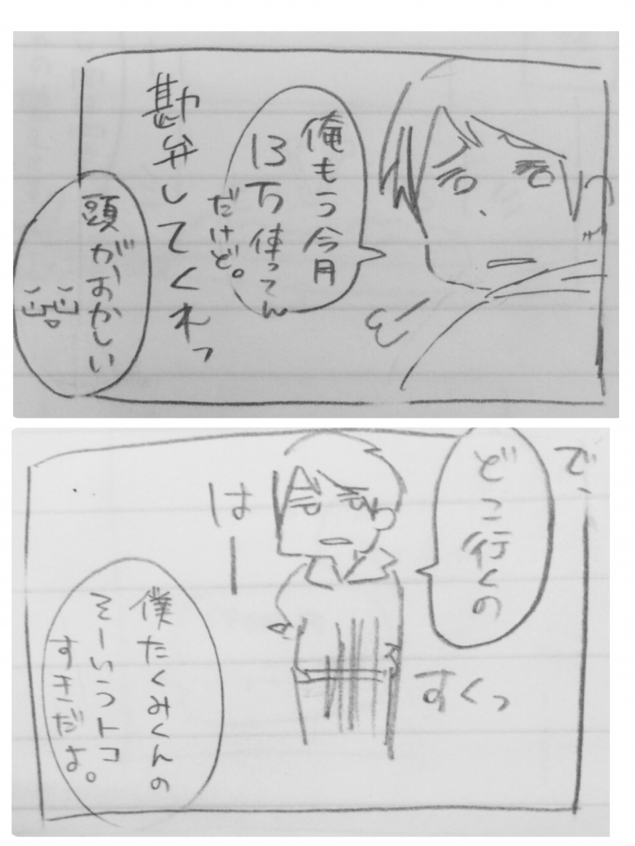 俺もう今月
13万使ってん
だけど。
勘弁してくれっ
頭がおかしい
で、
どこ行くの
すくっ
はー
僕たくみくんの
そーいうトコ
すきだよ。